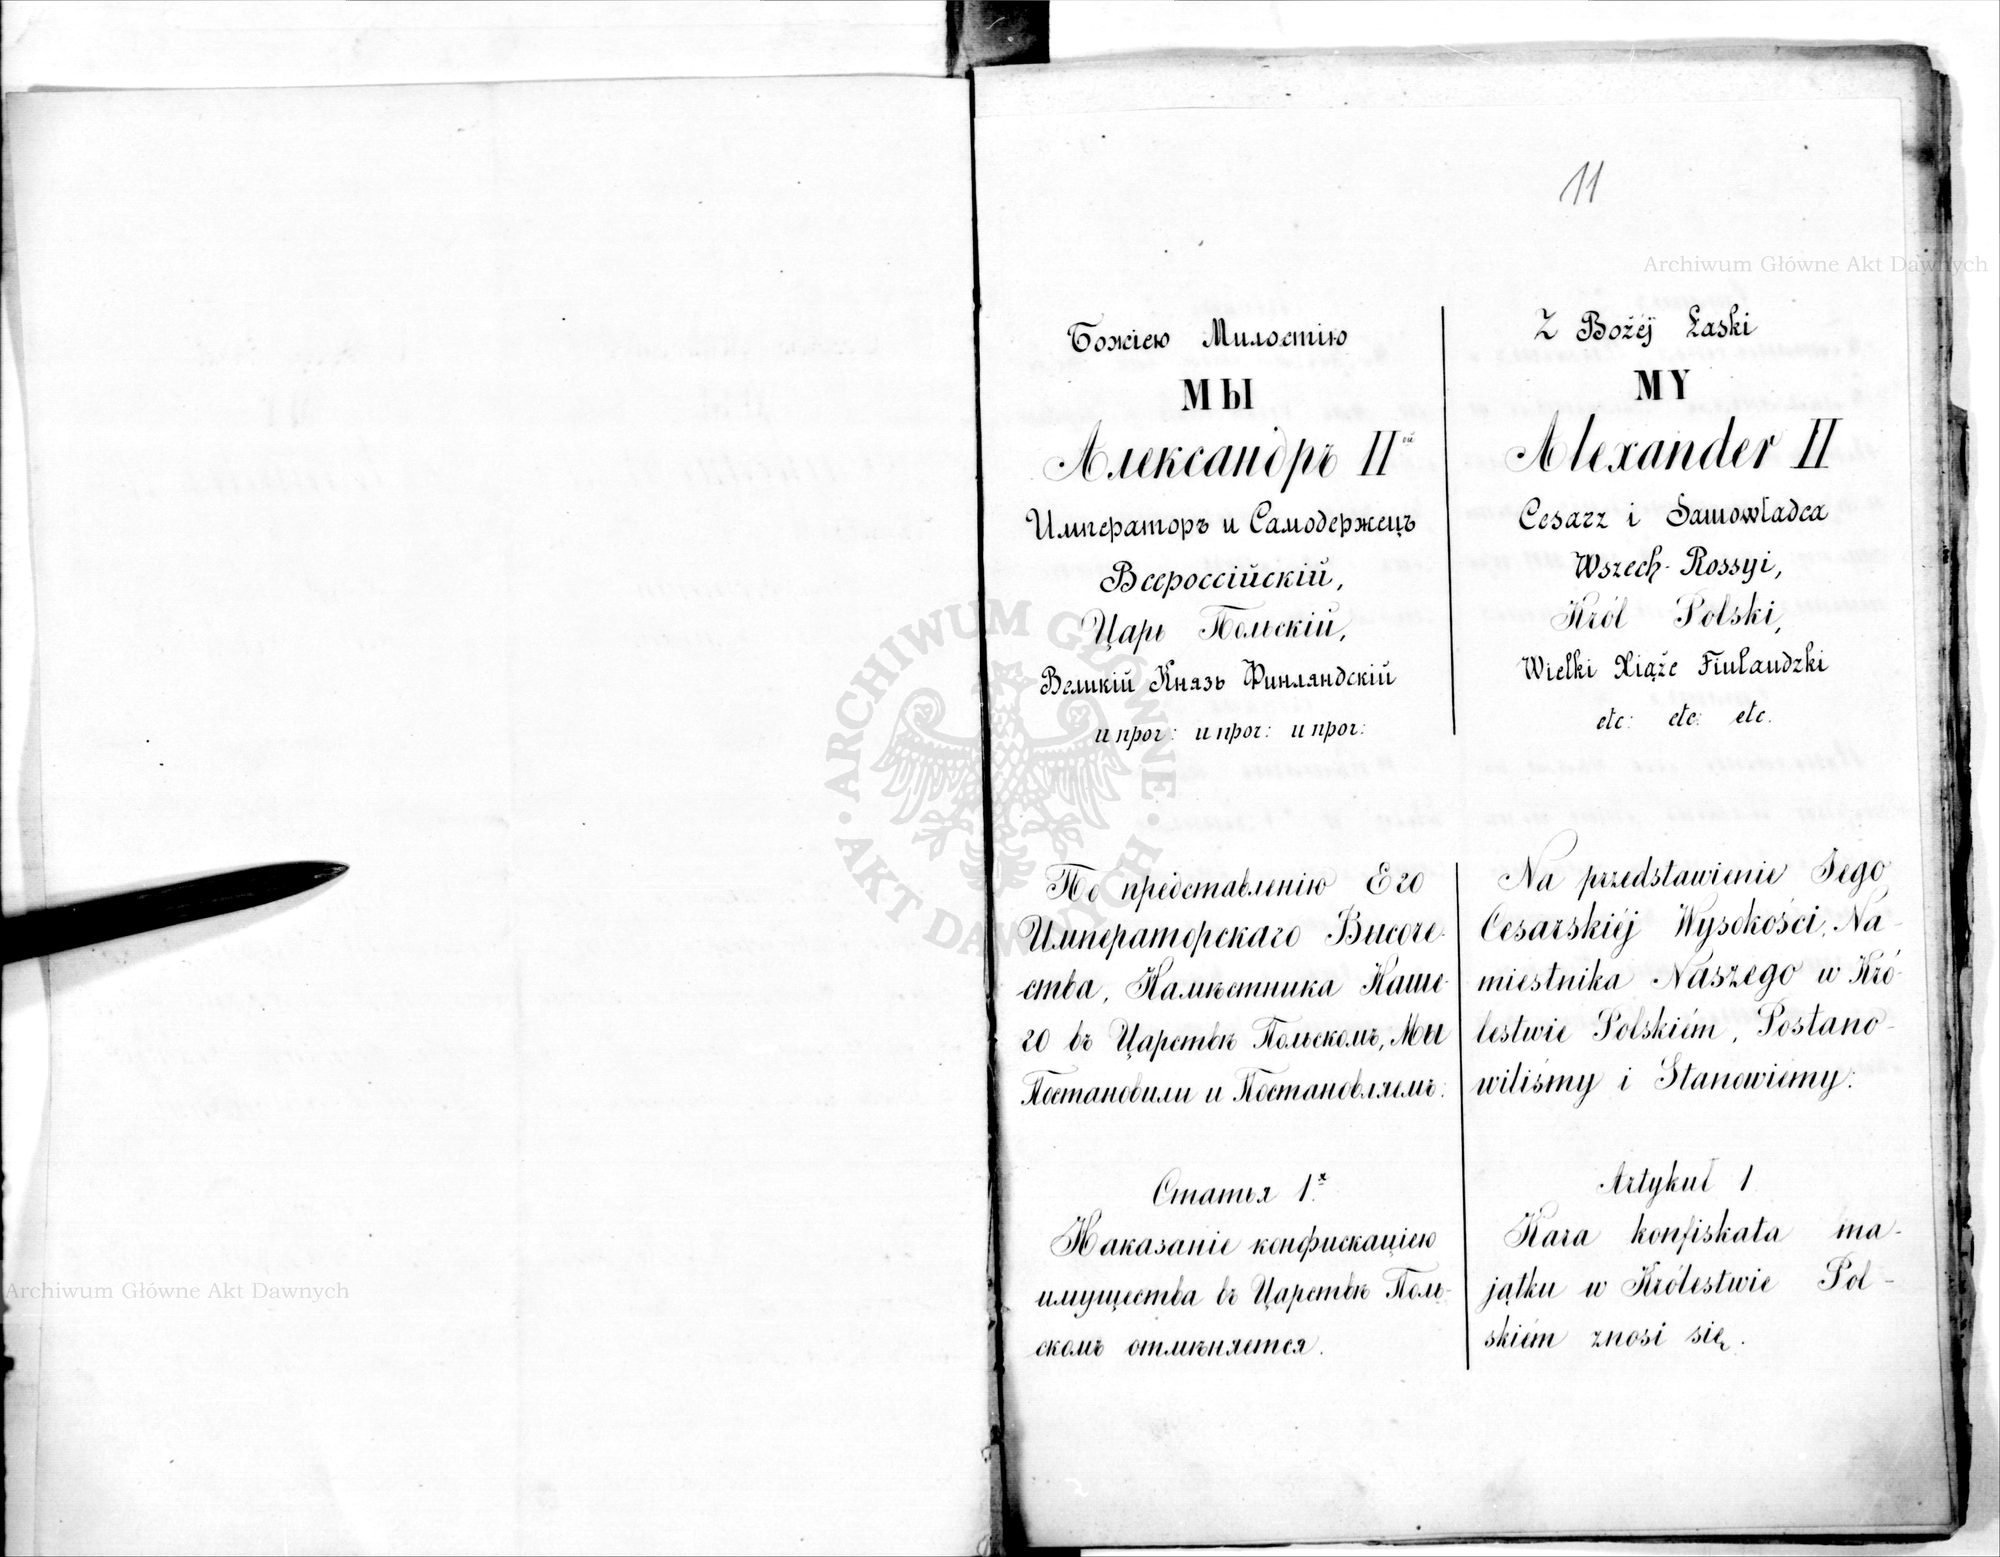 11
Archiwum Główne Akt Dawnych
Божіею Милостію
МЫ
Александръ II ой
Императоръ и Самодержецъ
Всероссійскій,
Царь Польскій,
Великій Князь Финляндскій
и проч: и проч: и проч:
По представленію Его
Императорскаго Высоче-
ства, Намѣстника Наше-
го въ Царствѣ Польскомъ, Мы
Постановили и Постановляемъ:
Статья 1.я
Наказаніе конфискаціею
имущества въ Царствѣ Поль-
скомъ отмѣняется.
Z Bożéj Łaski
MY
Alexander II
Cesarz i Samowładca
Wszech-Rossyi,
Król Polski,
Wielki Xiąże Finlandzki
etc: etc: etc.
Na przedstawienie Jego
Cesarskiéj Wysokości, Na-
miestnika Naszego w Kró-
lestwie Polskiém, Postano-
wiliśmy i Stanowiemy:
Artykuł 1
Kara konfiskata ma-
jątku w Królestwie Pol-
skiém znosi się.
ARCHIWUM GŁÓWNE AKT DAWNYCH
Archiwum Główne Akt Dawnych